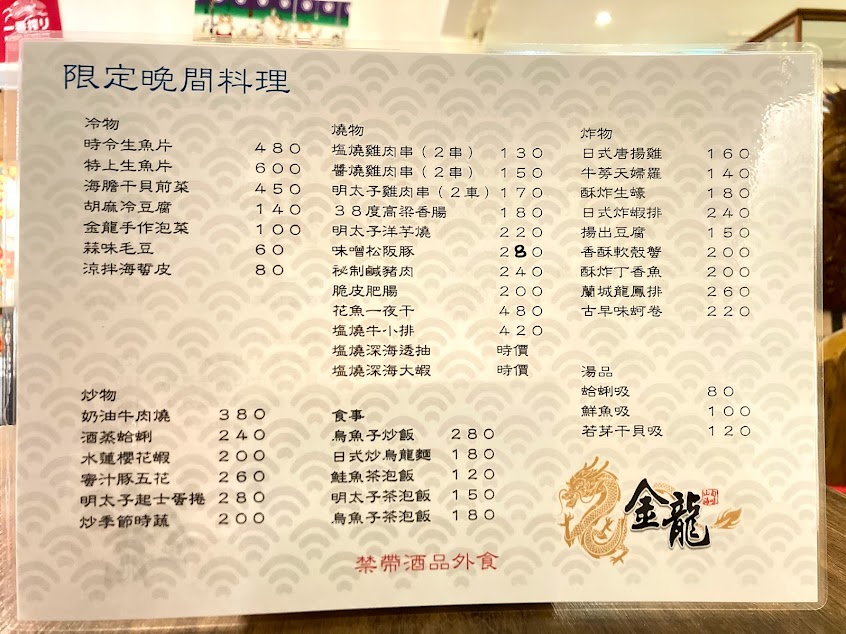 一番搾り
限定晚間料理
冷物
時令生魚片 480
特上生魚片 600
海膽干貝前菜 450
胡麻冷豆腐 140
金龍手作泡菜 100
蒜味毛豆 60
涼拌海蜇皮 80
燒物
塩燒雞肉串（2串） 130
醬燒雞肉串（2串） 150
明太子雞肉串（2車） 170
38度高粱香腸 180
明太子洋芋燒 220
味噌松阪豚 280
祕制鹹豬肉 240
脆皮肥腸 200
花魚一夜干 480
塩燒牛小排 420
塩燒深海透抽 時價
塩燒深海大蝦 時價
炸物
日式唐揚雞 160
牛蒡天婦羅 140
酥炸生蠔 180
日式炸蝦排 240
揚出豆腐 150
香酥軟殼蟹 200
酥炸丁香魚 200
蘭城龍鳳排 260
古早味蚵卷 220
炒物
奶油牛肉燒 380
酒蒸蛤蜊 240
水蓮櫻花蝦 200
蜜汁豚五花 260
明太子起士蛋捲 280
炒季節時蔬 200
食事
烏魚子炒飯 280
日式炒烏龍麵 180
鮭魚茶泡飯 120
明太子茶泡飯 150
烏魚子茶泡飯 180
湯品
蛤蜊吸 80
鮮魚吸 100
若芽干貝吸 120
金龍
禁帶酒品外食